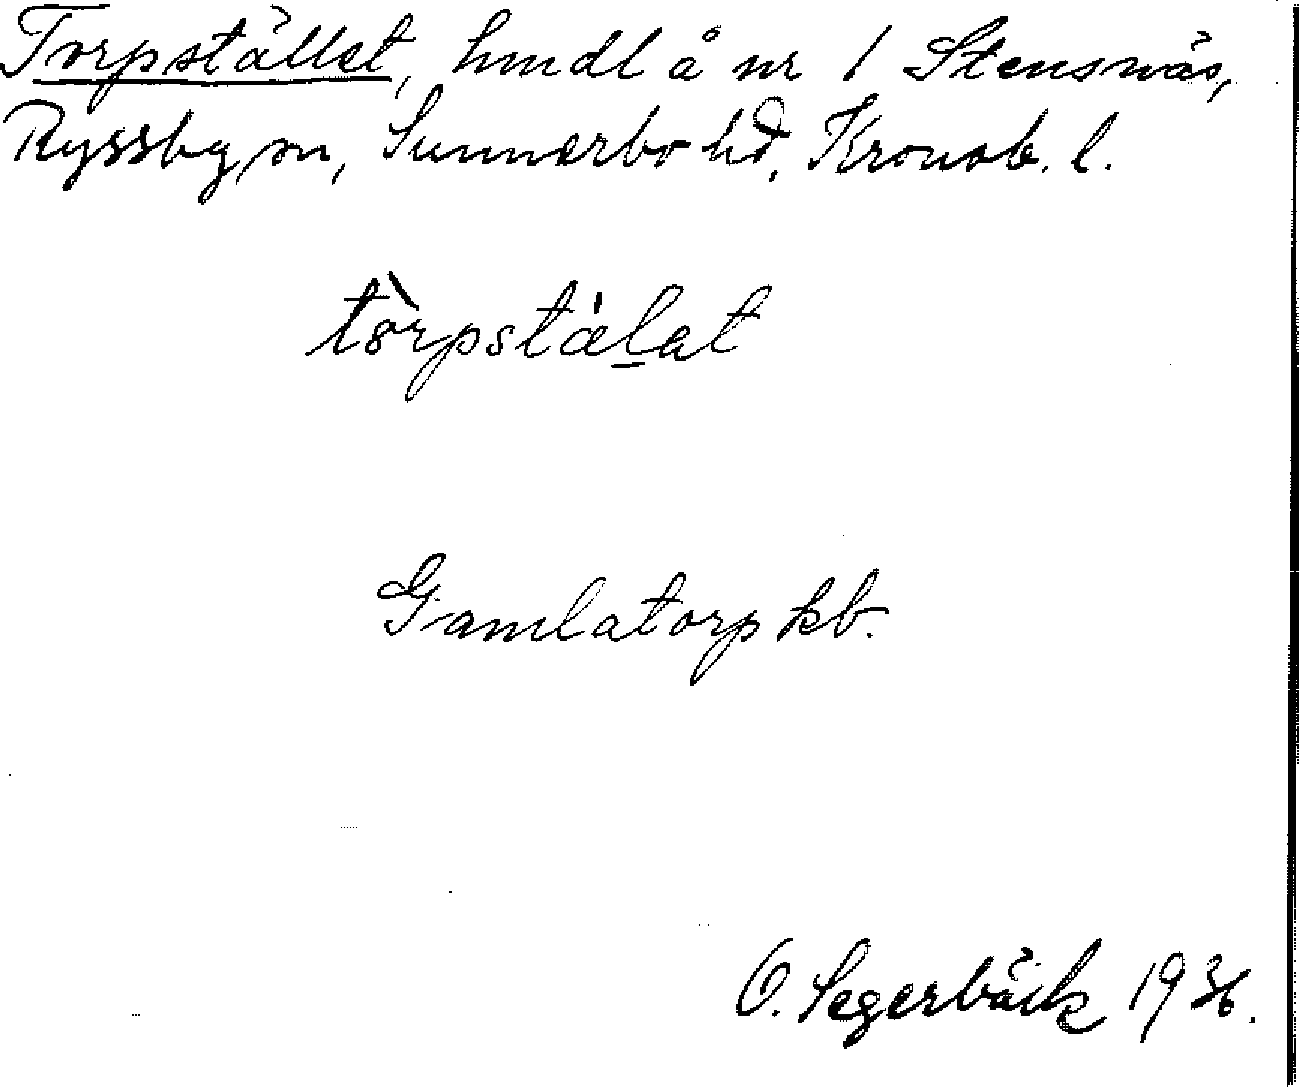 Torpstället, hmdl å nr 1 Stensnäs,
Ryssby sn, Sunnerbo hd, Kronob. l.
tòrpstälat
Gamlatorp kb.
O. Segerbäck 1936.